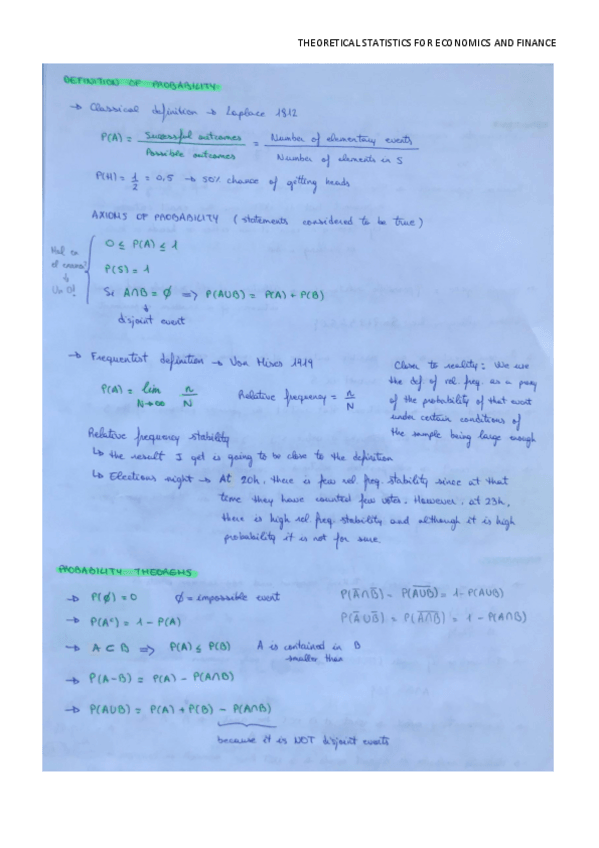 THEORETICAL STATISTICS FOR ECONOMICS AND FINANCE
DEFINITION OF PROBABILITY
→ Classical definition → Laplace 1812
P(A) = Successful outcomes / Possible outcomes = Number of elementary events / Number of elements in S
P(H) = 1/2 = 0,5 → 50% chance of getting heads
AXIONS OF PROBABILITY (statements considered to be true)
0 ≤ P(A) ≤ 1
P(S) = 1
Si A∩B = ∅ ⇒ P(A∪B) = P(A) + P(B)
↓
disjoint event
Mal en
el examen?
↓
Un 0!
→ Frequentist definition → Von Mises 1919
P(A) = lim N→∞ n/N
Relative frequency = n/N
Closer to reality: We use
the def. of rel. freq. as a proxy
of the probability of that event
under certain conditions of
the sample being large enough
Relative frequency stability
↳ the result I get is going to be close to the definition
↳ Elections night → At 20h, there is few rel. freq. stability since at that
time they have counted few votes. However, at 23h,
there is high rel. freq. stability and although it is high
probability it is not for sure.
PROBABILITY THEOREMS
→ P(∅) = 0 ∅ = impossible event
→ P(Aᶜ) = 1 - P(A)
→ A ⊂ B ⇒ P(A) ≤ P(B) A is contained in B
smaller than
→ P(A-B) = P(A) - P(A∩B)
→ P(A∪B) = P(A) + P(B) - P(A∩B)
because it is NOT disjoint events
P(A̅∩B̅) - P(A̅∪̅B̅) = 1 - P(A∪B)
P(A̅∪B̅) = P(A̅∩̅B̅) = 1 - P(A∩B)